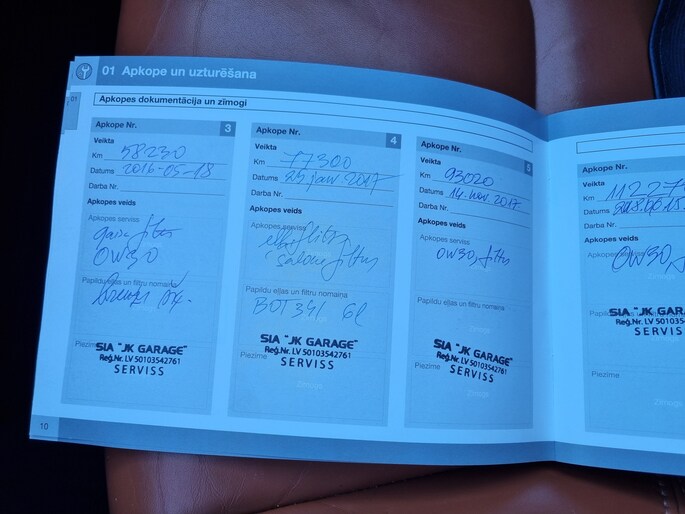 01 Apkope un uzturēšana
01
Apkopes dokumentācija un zīmogi
Apkope Nr. 3
Veikta
Km 58230
Datums 2016-05-18
Darba Nr.
Apkopes veids
Apkopes serviss
gaisa filtrs
0W30
Papildu eļļas un filtru nomaiņa
Piezīme
SIA "JK GARAGE"
Reģ.Nr. LV 50103542761
SERVISS
10
Apkope Nr. 4
Veikta
Km 77300
Datums 25 jan 2017
Darba Nr.
Apkopes veids
Apkopes serviss
eļļa filtrs
salona filtrs
Papildu eļļas un filtru nomaiņa
BOT 341 6l
SIA "JK GARAGE"
Reģ.Nr. LV 50103542761
SERVISS
Zīmogs
Apkope Nr. 5
Veikta
Km 93020
Datums 14. nov. 2017
Darba Nr.
Apkopes veids
Apkopes serviss
0W30, filtrs
Papildu eļļas un filtru nomaiņa
Piezīme
SIA "JK GARAGE"
Reģ.Nr. LV 50103542761
SERVISS
Zīmogs
Apkope Nr.
Veikta
Km
Datums
Darba Nr.
Apkopes veids
Apkopes serviss
0W30,
Papildu eļļas un filtru
SIA "JK GARA
Reģ.Nr. LV 501035
SERVISS
Piezīme
Zīmogs